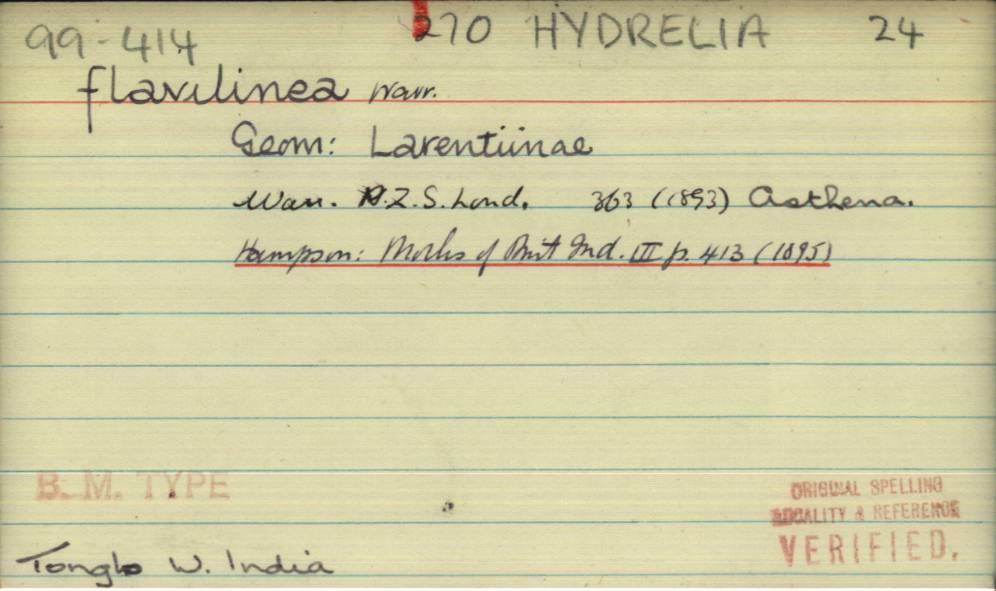 99-414 270 HYDRELIA 24
flavilinea Warr.
Geom: Larentiinae
Warr. P.Z.S. Lond. 363 (1893) Asthena.
Hampson: Moths of Brit Ind. III p. 413 (1895)
B. M. TYPE
ORIGINAL SPELLING
LOCALITY & REFERENCE
VERIFIED.
Tonglo W. India